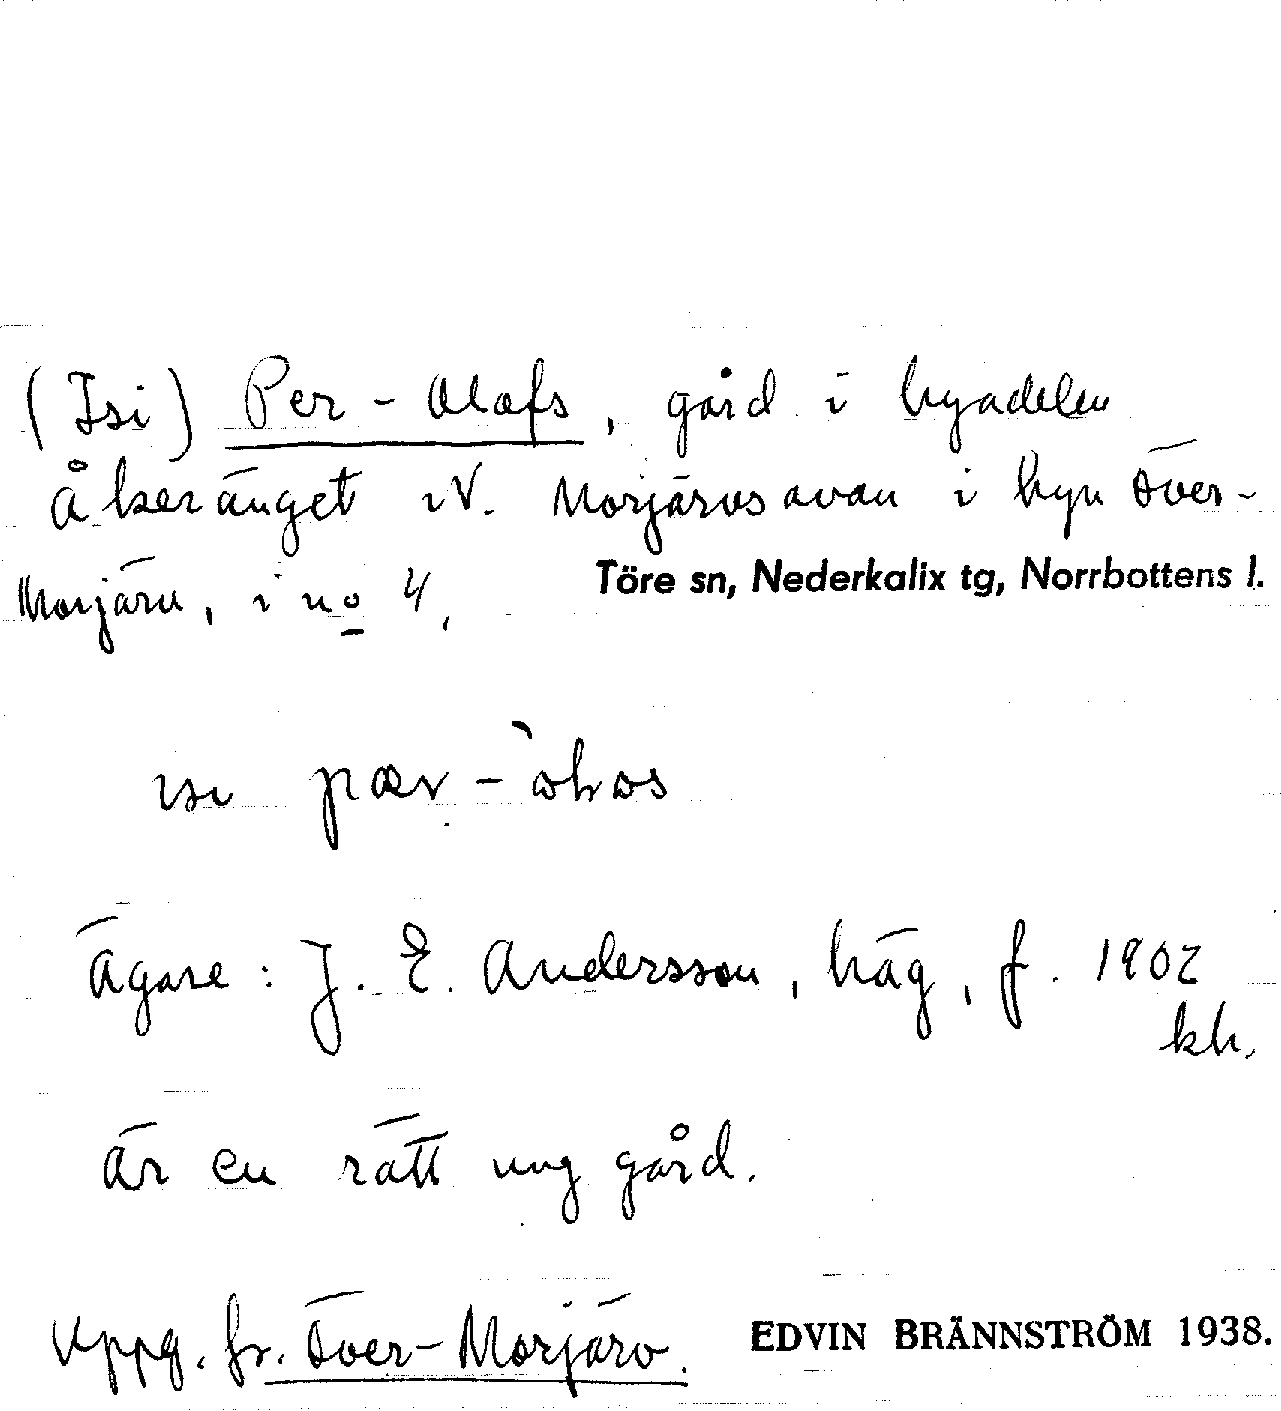 (Isi) Per-Olofs, gård i byadelen
Åkeränget i V. Morjärvsavan i byn Över-
Morjärv, i no 4.
Töre sn, Nederkalix tg, Norrbottens l.
isi pær-
Ägare: J. E. Andersson, häg, f. 1902
kh.
är en rätt ung gård.
Uppg. fr. Över-Morjärv.
EDVIN BRÄNNSTRÖM 1938.